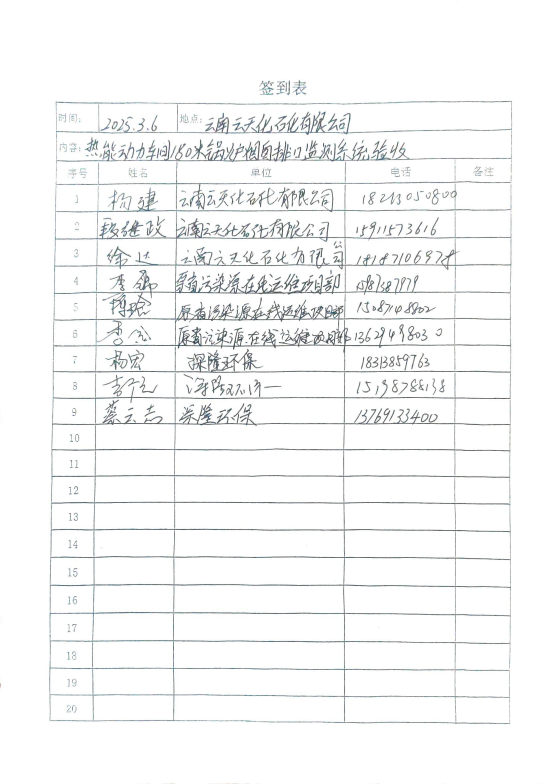 签到表
时间: 2025.3.6 地点: 云南云天化石化有限公司
内容: 热能动力车间180米锅炉烟囱排口监测系统验收
序号 姓名 单位 电话 备注
1 杨建 云南云天化石化有限公司 18213050800
2 段继政 云南云天化石化有限公司 15911573616
3 徐达 云南云天化石化有限公司
4 李 在线运维项目部
5 污染源在线运维项目部 15087148802
6 李 污染源在线运维项目部 13629498030
7 杨宏 深隆环保 18313859763
8 15198788138
9 蔡云志 深隆环保 13769133400
10
11
12
13
14
15
16
17
18
19
20